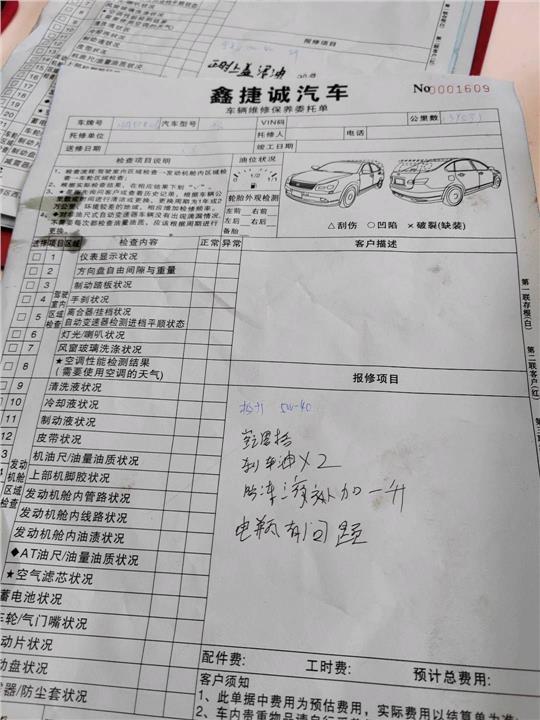 报修项目
鑫捷诚汽车
车辆维修保养委托单
No 0001609
车牌号 汽车型号 VIN码 公里数
托修单位 托修人 电话
送修日期 竣工日期
检查项目说明
油位状况
0 1/2 1
轮胎外观检测
左前 右前
左后 右后
备胎
△刮伤 ○凹陷 ×破裂(缺装)
选择 项目区域 检查内容 正常 异常
客户描述
驾驶室内区域检查
1 仪表显示状况
2 方向盘自由间隙与重量
3 制动踏板状况
4 手刹状况
5 离合器/挂档状况
自动变速器检测进档平顺状态
6 灯光/喇叭状况
7 风窗玻璃洗涤状况
8 ★空调性能检测结果
(需要使用空调的天气)
报修项目
9 清洗液状况
10 冷却液状况
11 制动液状况
12 皮带状况
发动机舱区域检查
机油尺/油量油质状况
上部机脚胶状况
发动机舱内管路状况
发动机舱内线路状况
发动机舱内油渍状况
◆AT油尺/油量油质状况
★空气滤芯状况
蓄电池状况
车轮/气门嘴状况
动片状况
动盘状况
器/防尘套状况
5W-40
刹车油X2
防冻液外加一升
电瓶有问题
配件费: 工时费: 预计总费用:
客户须知
1、此单据中费用为预估费用,实际费用以结算单为准
第一联存根(白)
第二联客户(红)